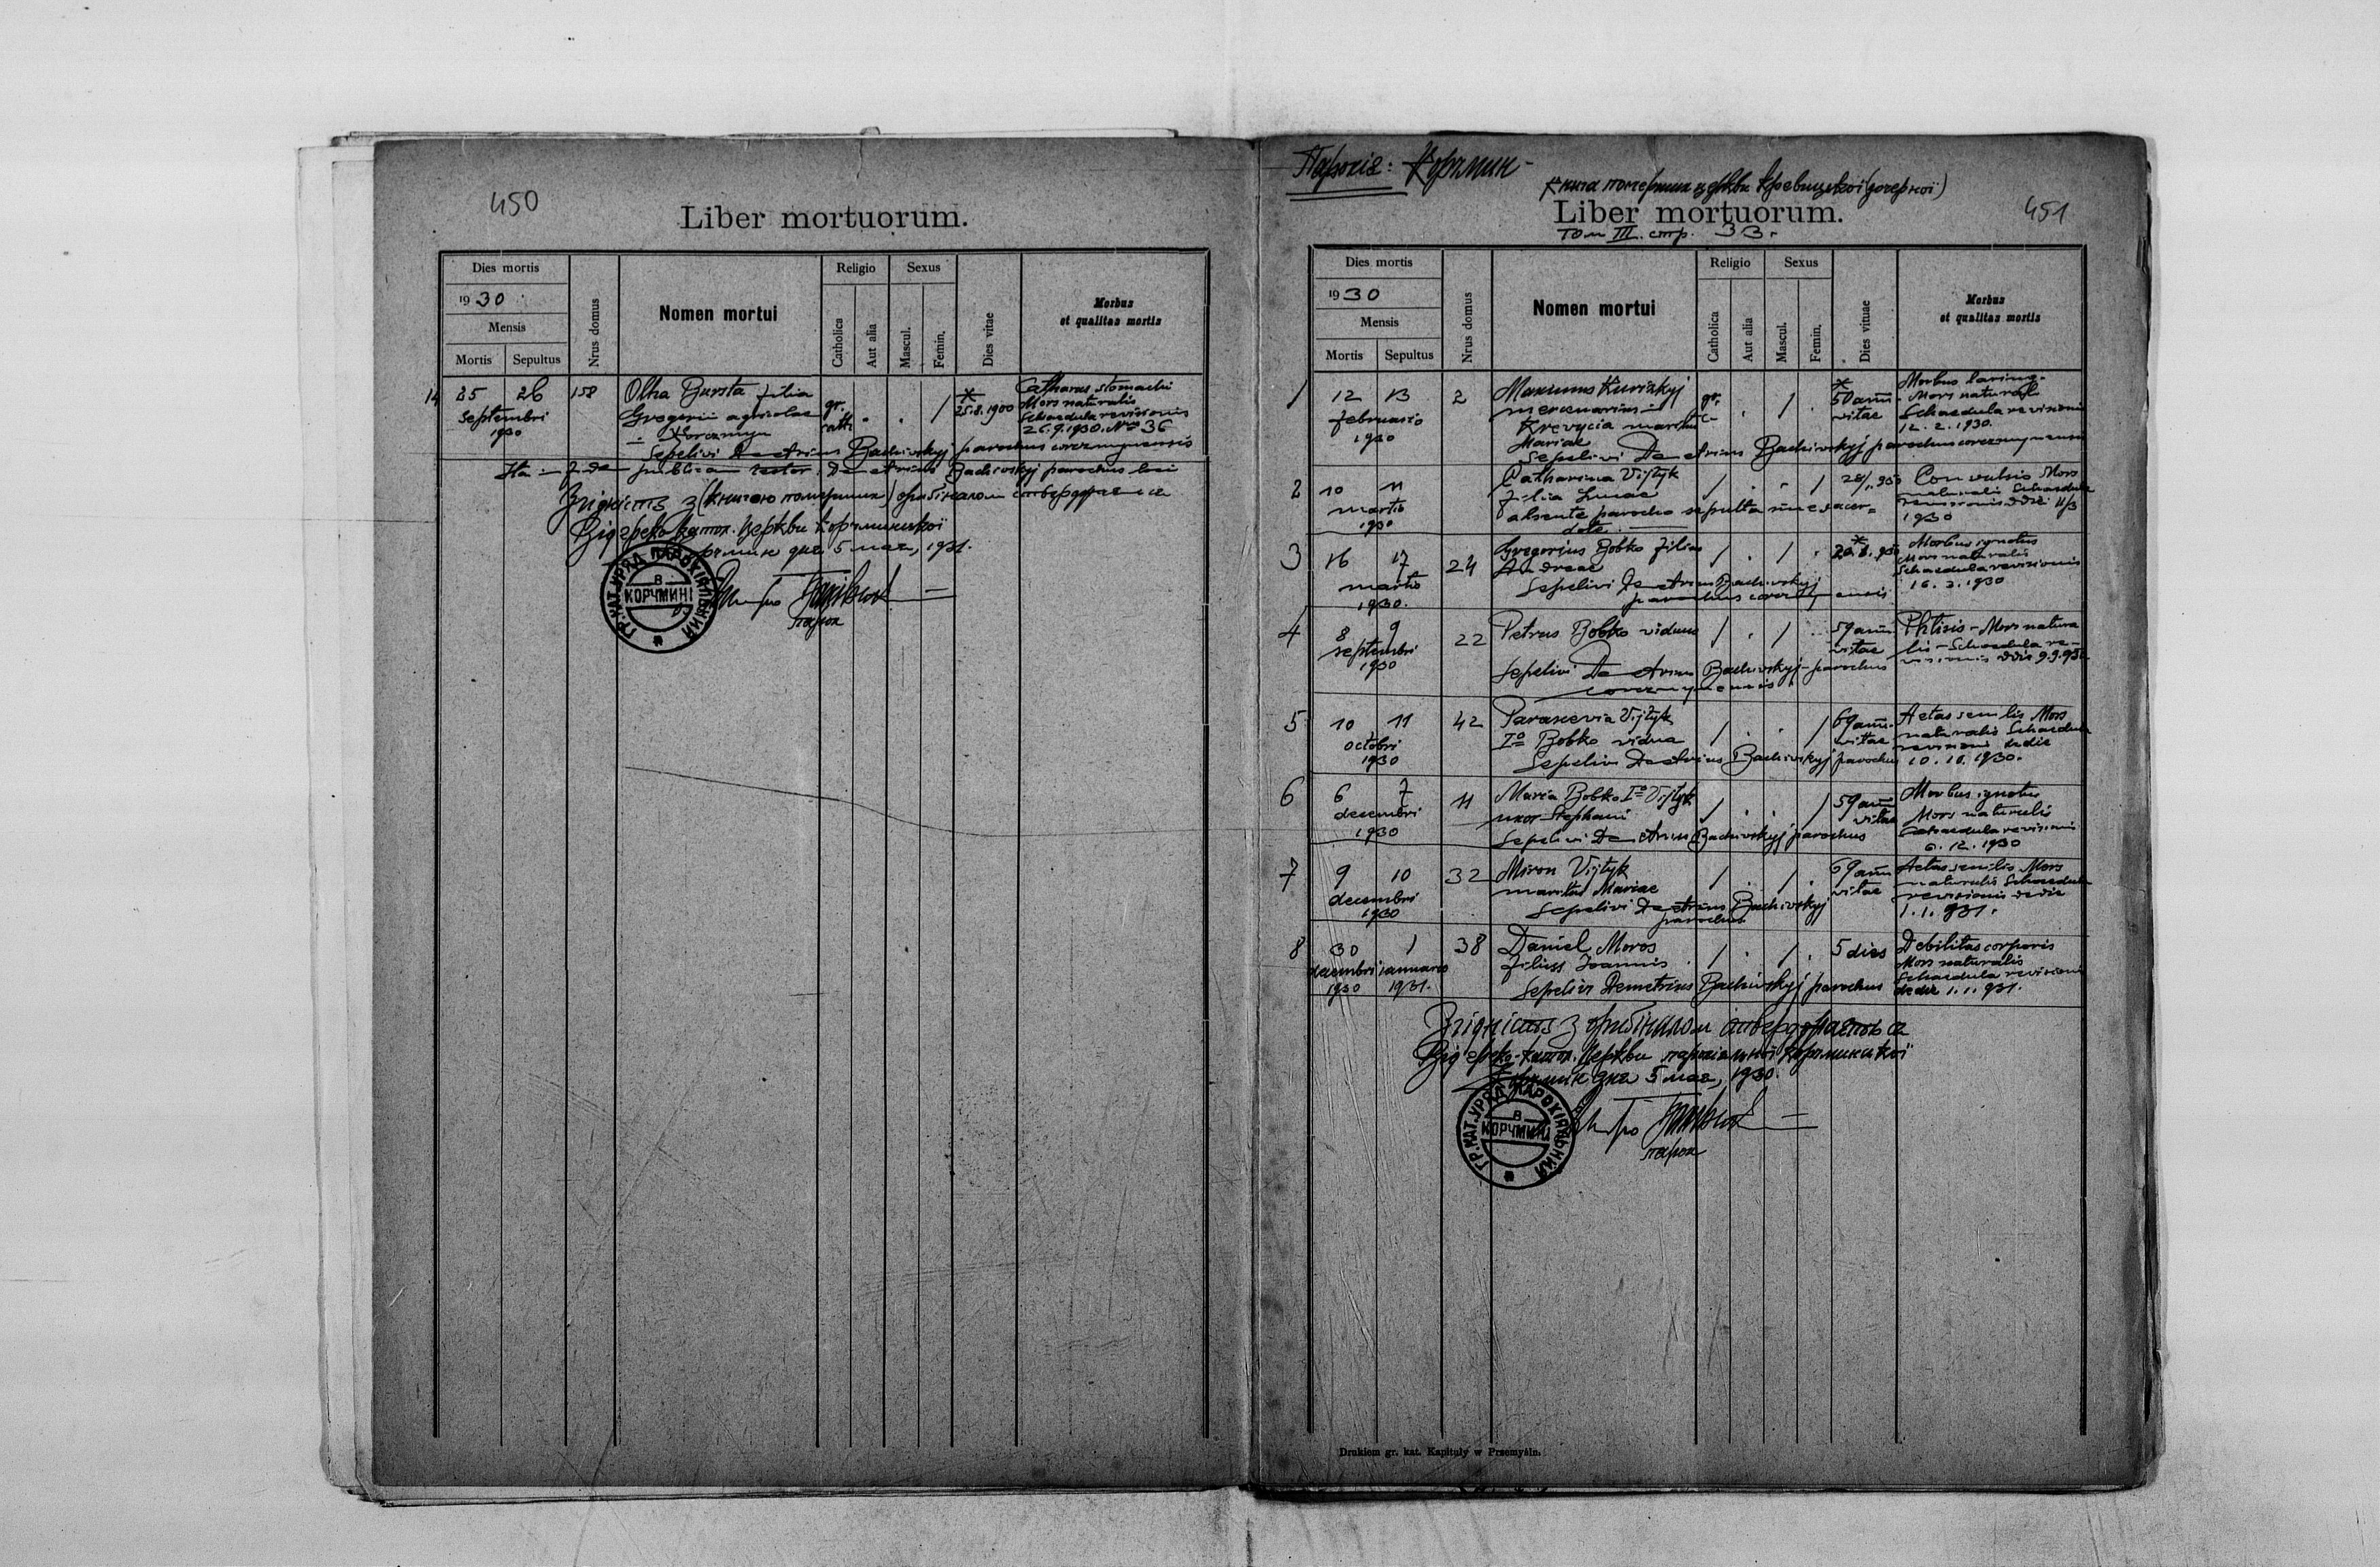 450
Liber mortuorum.
Dies mortis
1930
Mensis
Mortis Sepultus
Nrus domus
Nomen mortui
Religio
Catholica
Aut alia
Sexus
Mascul.
Femin.
Dies vitae
Morbus
et qualitas mortis
14 25 26 158 Olha Bursta filia
septembri
1930
Gregorii agricolae
Korczmyn
gr.
cath
* 25.8.1900
Catharus stomachi
Mors naturalis
Schaedula revisionis
26.9.1930. Nro 36
Sepelivi Demetrius Bachivskyj parochus corczmynensis
Ita in fidem publicam testor. Demetrius Bachivskyj parochus loci
Згідність з (книгою померших) оригіналом стверджується
Від греко-катол. Церкви Корчминської
Корчмин дня 5 мая, 1931.
ГР.КАТ.УРЯД ПАРОХІЯЛЬНИЙ
В
КОРЧМИНІ
парох
Парохія: Корчмин
Книга померших церкви Кревицкої (дочерної)
451
Liber mortuorum.
Том III. стр. 33.
Dies mortis
1930
Mensis
Mortis Sepultus
Nrus domus
Nomen mortui
Religio
Catholica
Aut alia
Sexus
Mascul.
Femin.
Dies vituae
Morbus
et qualitas mortis
1 12 13 2
februario
1930
Maximus
mercenarius in
Krevycia maritus
Mariae
gr.
c.
50 ann
vitae
Morbus laring.
Mors natural
Schaedula revisionis
12. 2. 1930.
Sepelivi Demetrius Bachivskyj parochus corczmynensis
2 10 11
martio
1930
Catharina Vijtyk
filia Lucae
absente parocho sepulta sine sacer=
dote.
Convulsio Mors
naturalis Schaedula
revisionis ddie 11/3
1930
3 16 17 24
martio
1930.
Gregorius Bobko filius
Andreae
Sepelivi Demetrius Bachivskyj
parochus corczmynensis
Morbus ignotus
Mors naturalis
Schaedula revisionis
16. 3. 1930
4 8 9 22
septembri
1930
Petrus Bobko viduus
59 ann
vitae
Phtisis - Mors natura
lis - Schaedula re-
visionis ddie 9.9.930
Sepelivi Demetrius Bachivskyj - parochus
corczmynensis
5 10 11 42
octobri
1930
Parascevia Vijtyk
Io Bobko vidua
69 ann.
vitae
Aetas senilis Mors
naturalis Schaedula
revisionis dedie
10. 10. 1930.
Sepelivi Demetrius Bachivskyj parochus
6 6 7 11
decembri
1930
Maria Bobko Io Vijtyk
uxor Stephani
59 ann
vitae
Morbus ignotus
Mors naturalis
Schaedula revisionis
6. 12. 1930
Sepelivi Demetrius Bachivskyj parochus
7 9 10 32
decembri
1930
Miron Vijtyk
maritus Mariae
69 ann
vitae
Aetas senilis Mors
naturalis Schaedula
revisionis dedie
1. 1. 931.
Sepelivi Demetrius Bachivskyj
parochus
8 30 1 38
decembri januario
1930 1931.
Daniel Moros
filius Joannis
5 dies
Debilitas corporis
Mors naturalis
Schaedula revisionis
dedie 1.1.931.
Sepelivi Demetrius Bachivskyj parochus
Згідність з оригіналом стверджається
Від греко-катол. Церкви парохіяльної Корчминської
Корчмин дня 5 мая, 1930.
ГР.КАТ.УРЯД ПАРОХІЯЛЬНИЙ
В
КОРЧМИНІ
парох
Drukiem gr. kat. Kapituły w Przemyślu.